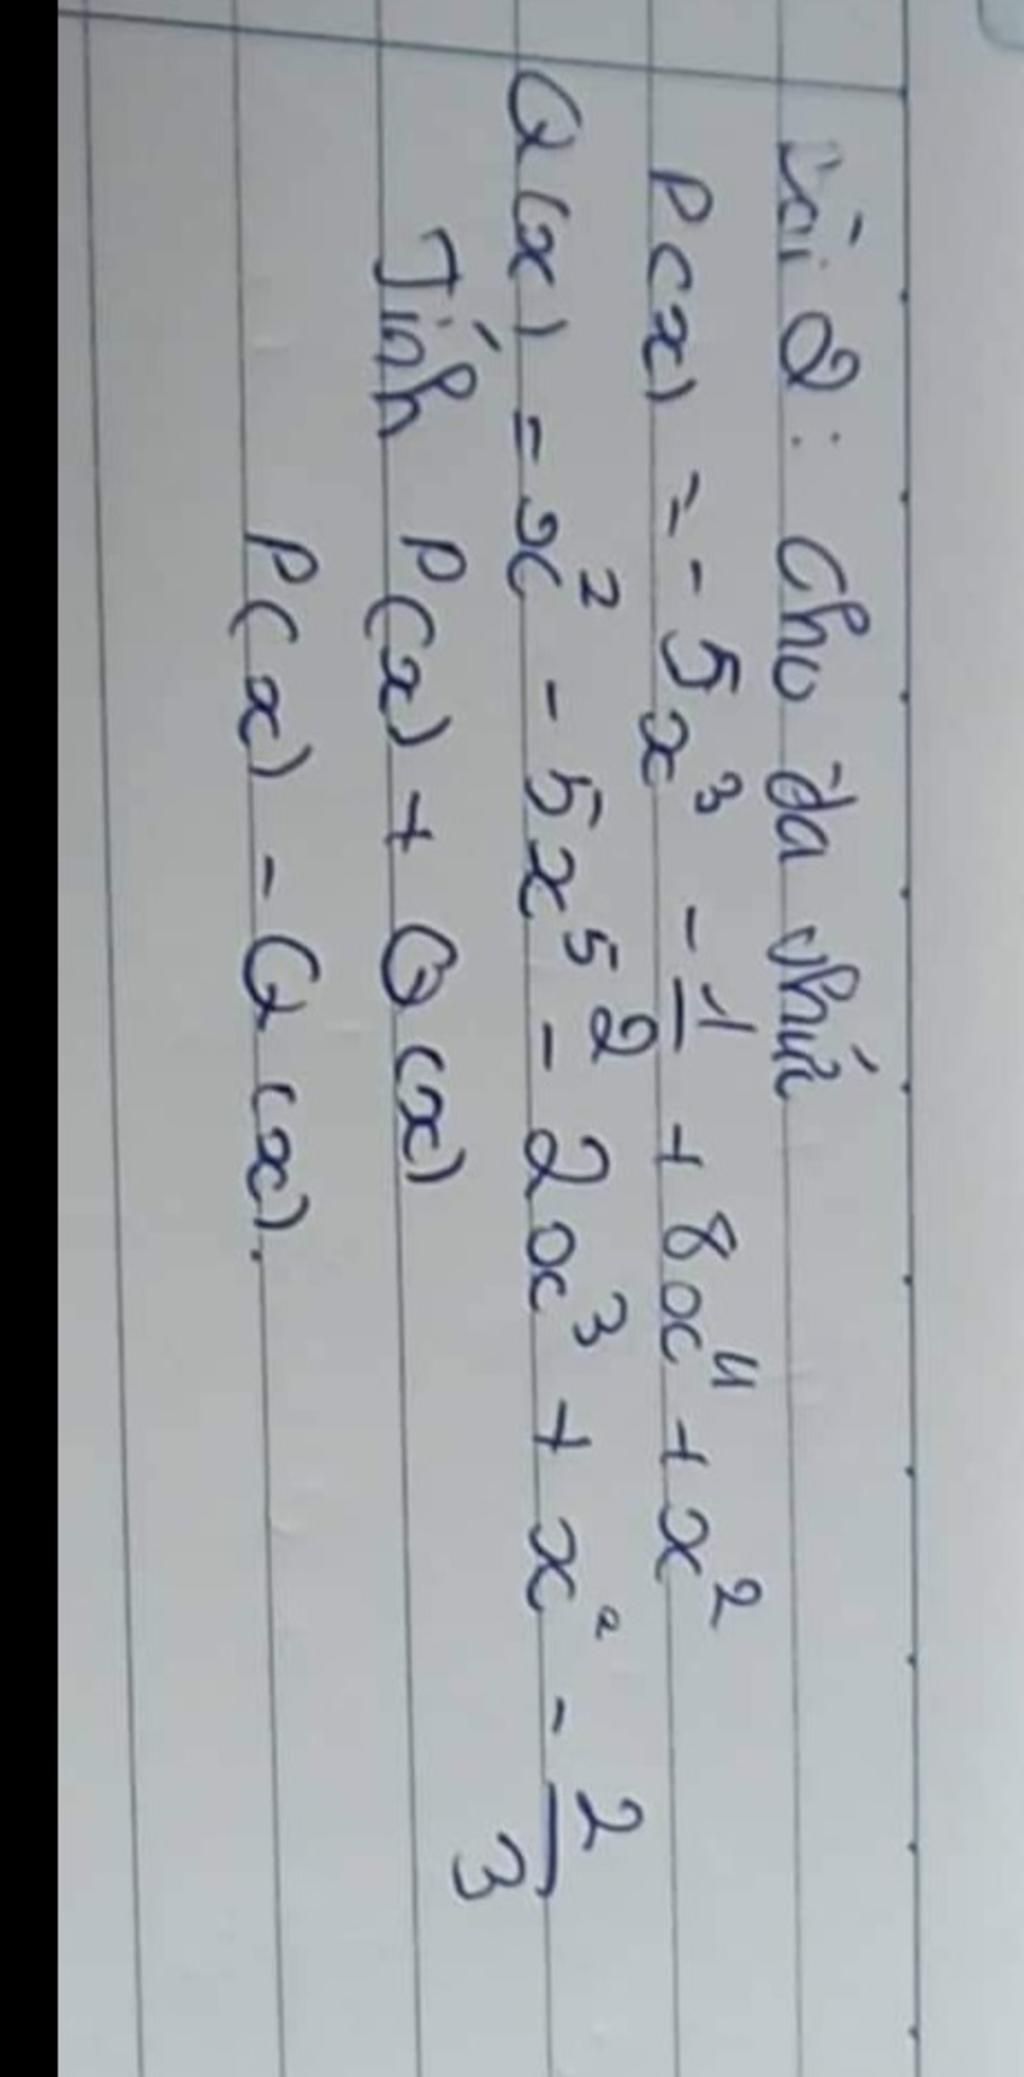 Bài 2: Cho đa thức
P(x) = - 5x³ - 1/2 + 8x⁴ + x²
Q(x) = x² - 5x⁵ - 2x³ + x² - 2/3
Tính P(x) + Q(x)
P(x) - Q(x).